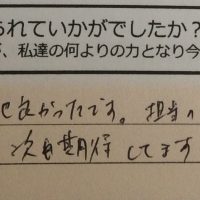 られていかがでしたか？
が、私達の何よりの力となり今
良かったです。担当の
次も期待してます